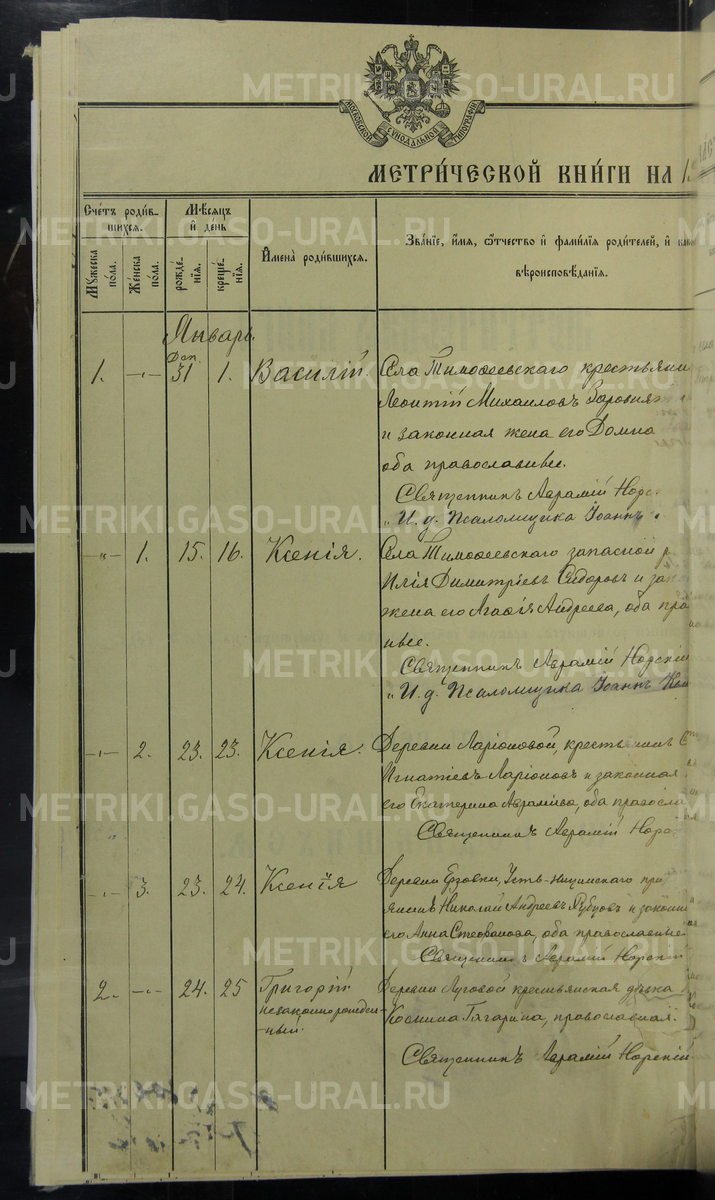 МОСКОВСКОЙ СУНОДАЛЬНОЙ ТИПОГРАФІИ
МЕТРИ́ЧЕСКОЙ КНИ́ГИ НА 1
Сче́тъ роди́в-
шихся.
Мѣ́сяцъ
и҆ де́нь
Мꙋжеска по́ла.
Же́нска по́ла.
рожде́-
нїѧ.
креще́-
нїѧ.
И҆мена̀ роди́вшихся.
Зва́нїе, и҆́мя, ѻ҆́тчество и҆ фами́лїя роди́телей, и҆
вѣроисповѣ́данїя.
Январь.
Дек.
1. -"- 31 1. Василій. Села Тимоѳеевскаго крестьянин
Леонтій Михаиловъ
и законная жена его Домна
оба православные.
Священникъ Аврамій Норс
"И. д. Псаломщика Іоаннъ
-"- 1. 15. 16. Ксенія. Села Тимоѳеевскаго запасной р
Илія Димитріевъ Сидоровъ и зак
жена его Агаѳія Андреева, оба пра
ные.
Священникъ Аврамій Норскій
"И. д. Псаломщика Іоаннъ
-"- 2. 23. 23. Ксенія. Деревни Ларіоновой, крестьянинъ С
Игнатіевъ Ларіоновъ и законная
его Екатерина Аврамьева, оба правосла
Священникъ Аврамій Норс
" 3. 23. 24. Ксенїя Деревни Ерзовки, Усть-Ницинскаго при
Николай Андреевъ Рубцовъ и законн
его Анна Стефанова, оба православные
Священникъ Аврамій Норскій
2. -"- 24. 25 Григорій Деревни Луговой крестьянская дѣвка
незаконнорожден-
ный. Гагарина, православная.
Священникъ Аврамій Норскій
METRIKI.GASO-URAL.RU